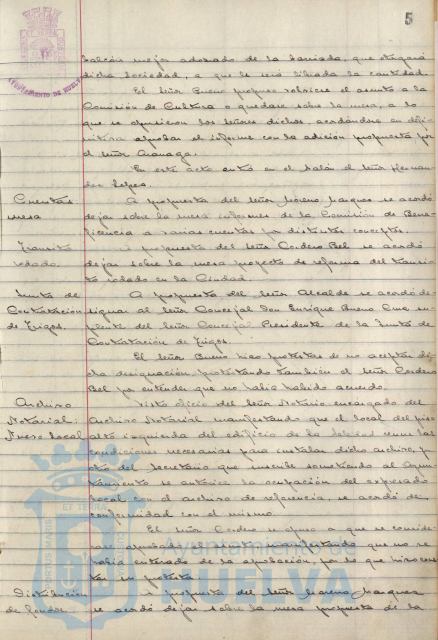 5
balcón mejor adornado de la barriada, que otorgará
dicha Sociedad, a que le será librada la cantidad.
El Señor Bueno propuso volviese el asunto a la
Comisión de Cultura o quedase sobre la mesa, a lo
que se opusieron los señores dichos, acordándose en defi-
nitiva aprobar el informe con la adición propuesta por
el Señor
En este acto entró en el Salón el Señor Hernan-
dez
Cuentas
mesa
A propuesta del Señor Moreno Marquez se acordó
dejar sobre la mesa informes de la Comisión de Bene-
ficencia a varias cuentas por distintos conceptos.
Transito
rodado
A propuesta del Señor Cordero Bel se acordó
dejar sobre la mesa proyecto de reforma del transi-
to rodado en la Ciudad.
Junta de
Contratación
de Trigos.
A propuesta del Señor Alcalde se acordó de-
signar al Señor Concejal Don Enrique Bueno Cruz su-
plente del Señor Concejal Presidente de la Junta de
Contratación de Trigos.
El Señor Bueno hizo protestas de no aceptar di-
cha designación, protestando también el Señor Cordero
Bel por entender que no había habido acuerdo.
Archivo
Notarial:
Nuevo local
Visto oficio del Señor Notario encargado del
Archivo Notarial manifestando que el local del piso
alto izquierda del edificio de la reune las
condiciones necesarias para instalar dicho archivo, y
otro del Secretario que suscribe sometiendo al Ayun-
tamiento se autorice la ocupación del expresado
local con el archivo de referencia, se acordó de
conformidad con el mismo.
El Señor Cordero se opuso a que se conside-
rase aprobado el asunto manifestando que no se
había enterado de la aprobación, por lo que hizo cons-
tar su protesta.
Distribución
de fondos
A propuesta del Señor Moreno Marquez
se acordó dejar sobre la mesa propuesta de la
Ayuntamiento de
HUELVA